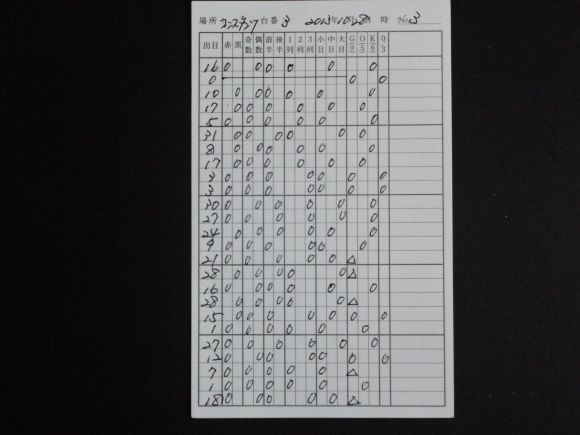 場所 台番 3 2013年10月28日 時 No 3
出目 赤 黒 奇数 偶数 前半 後半 1列 2列 3列 小目 中目 大目
16 0 0 0 0 0 0
0 0 0
10 0 0 0 0 0 0
17 0 0 0 0 0 0
5 0 0 0 0 0 0
31 0 0 0 0 0 0
8 0 0 0 0 0 0
17 0 0 0 0 0 0
3 0 0 0 0 0 0 0
3 0 0 0 0 0 0 0
30 0 0 0 0 0 0
27 0 0 0 0 0 0
24 0 0 0 0 0 0
9 0 0 0 0 0 0
21 0 0 0 0 0 △
28 0 0 0 0 0 △
16 0 0 0 0 0 0
28 0 0 0 0 0 △
15 0 0 0 0 0 0 0
1 0 0 0 0 0 0
27 0 0 0 0 0 0
12 0 0 0 0 0 0 0
7 0 0 0 0 0 △
1 0 0 0 0 0 0
18 0 0 0 0 0 △